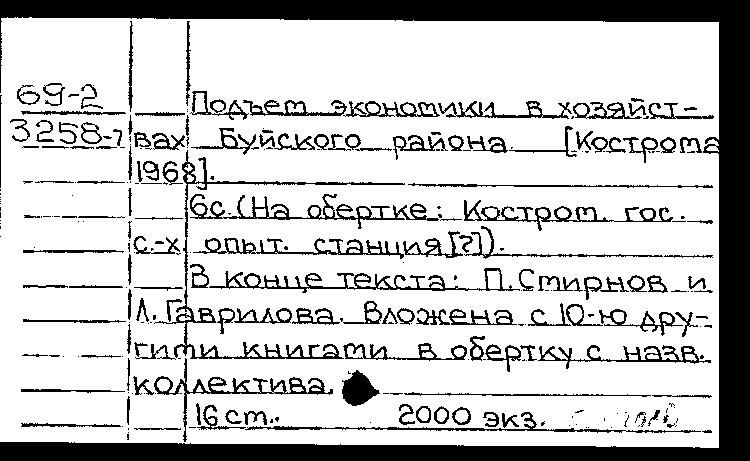 69-2
3258-7
Подъем экономики в хозяйст-
вах Буйского района [Кострома
1968].
6с. (На обертке: Костром. гос.
с.-х. опыт. станция[?]).
В конце текста: П.Смирнов и
Л.Гаврилова. Вложена с 10-ю дру-
гими книгами в обертку с назв.
коллектива.
16 см.. 2000 экз.